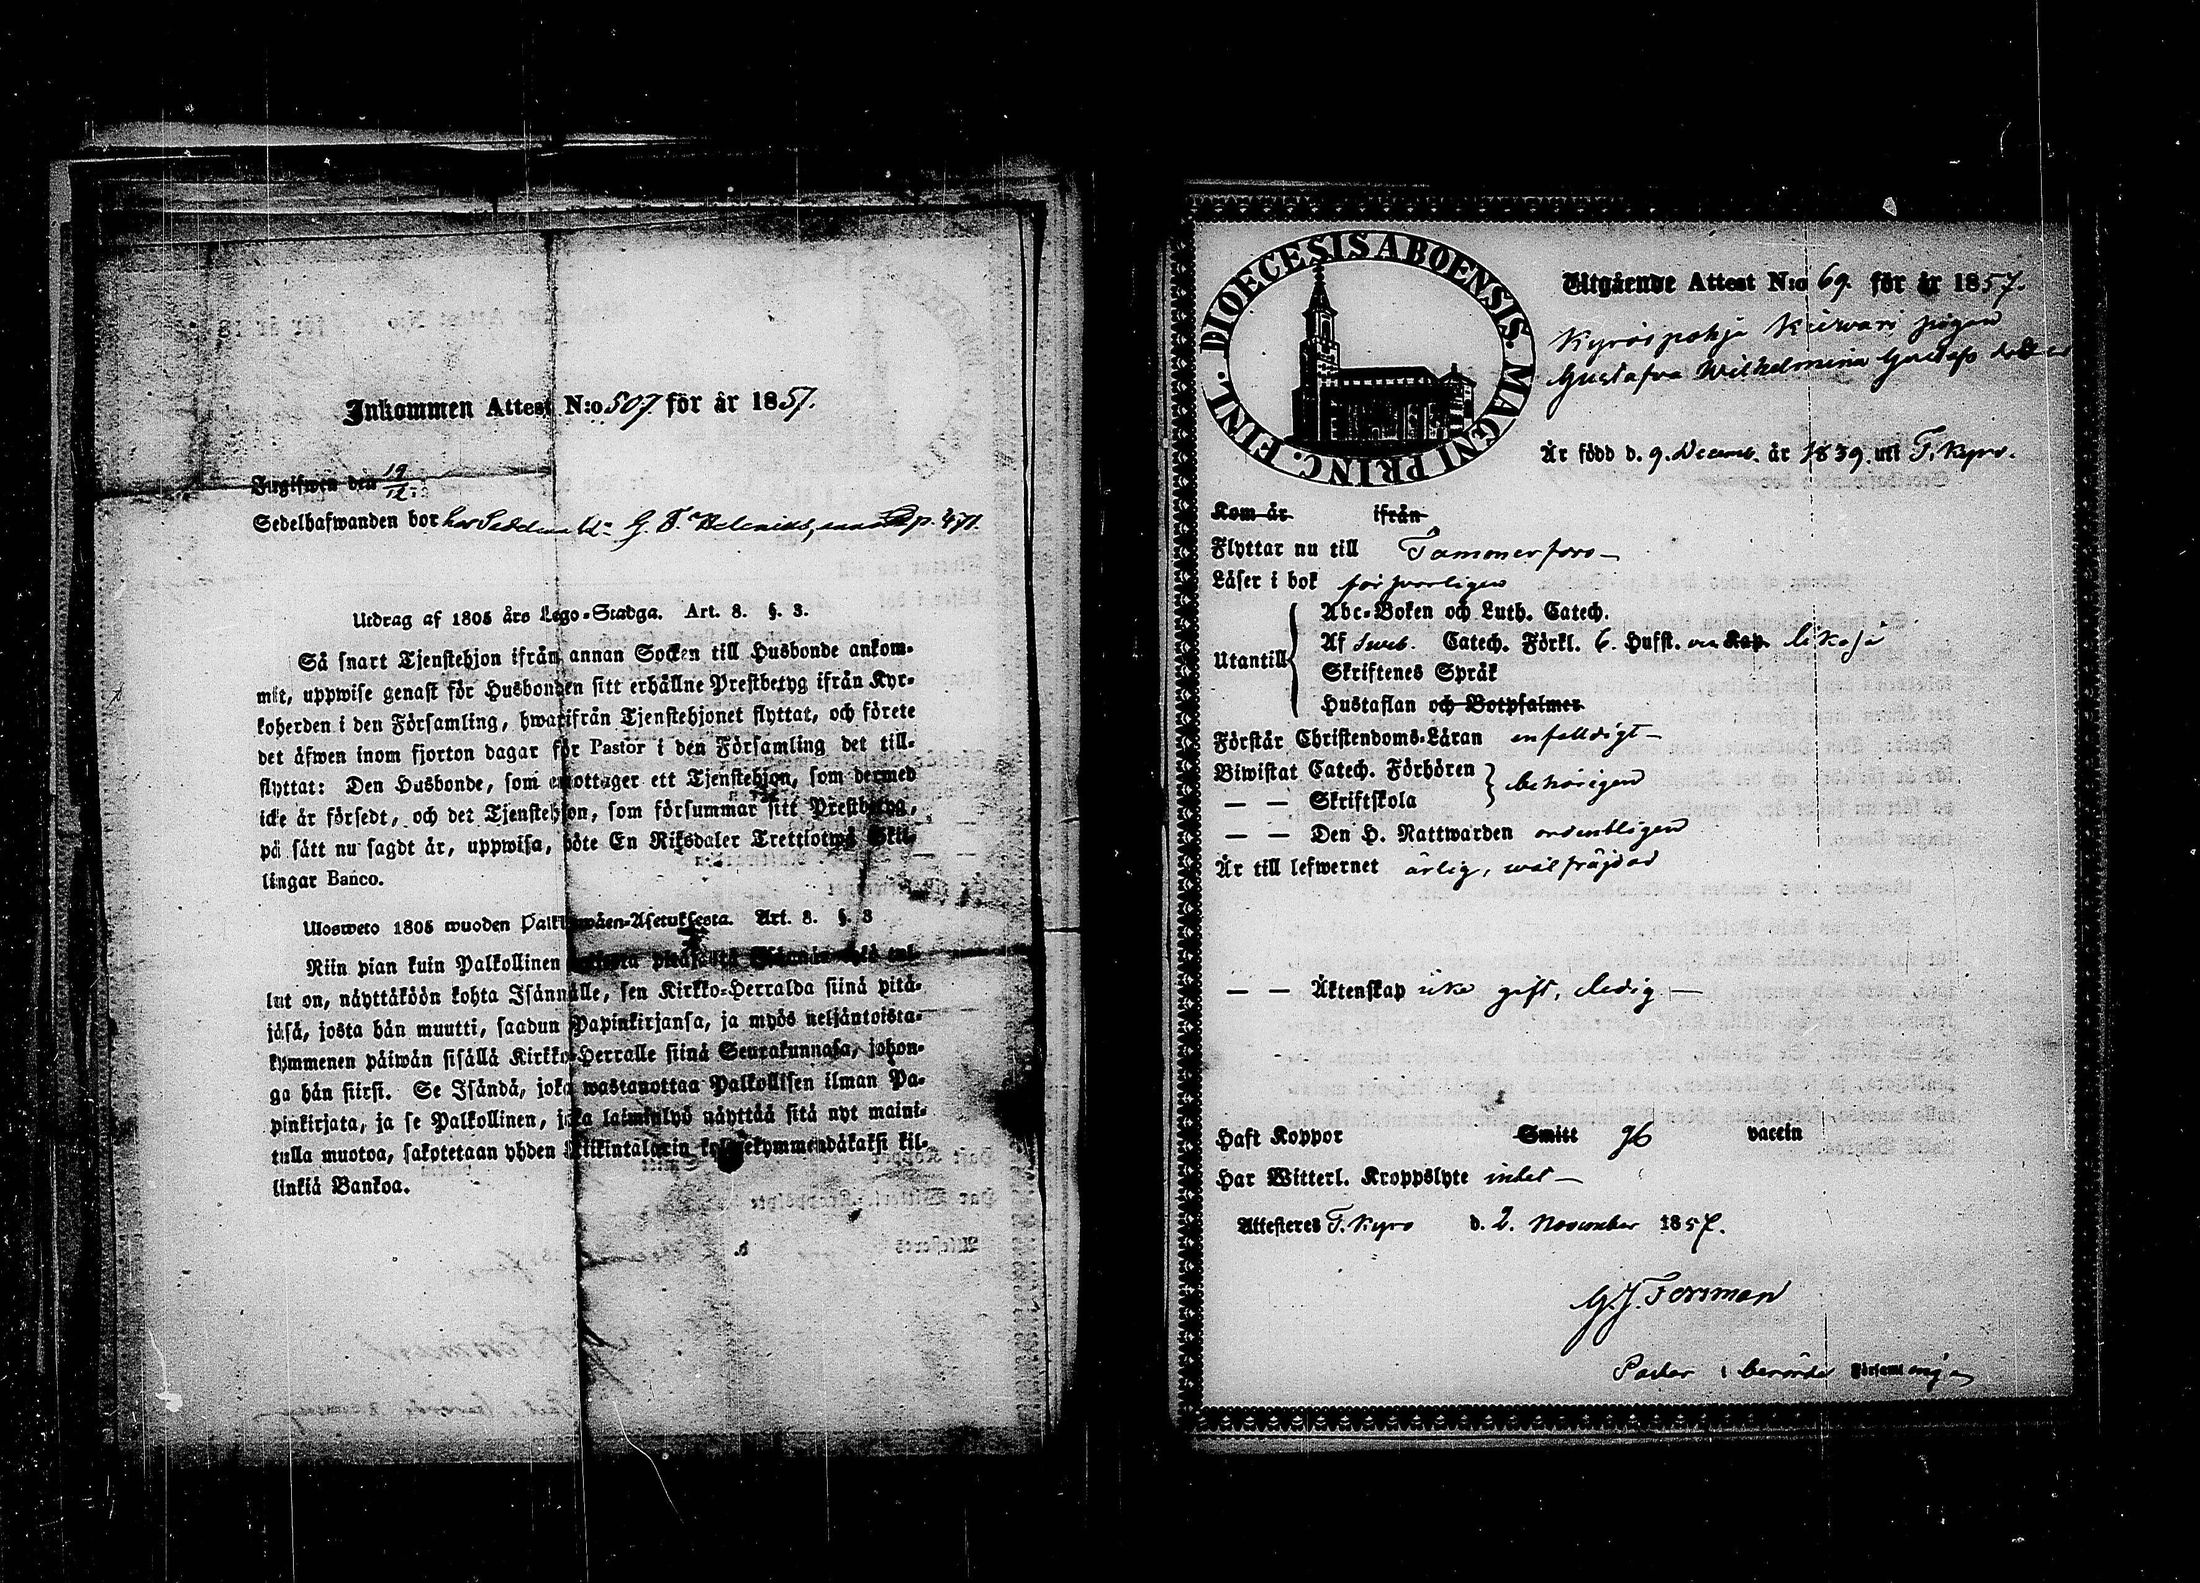 Inkommen Attest N:o 507 för år 1857.
Ingifwen den 19/12
Sedelhafwanden bor hos p. 471.
Utdrag af 1805 års Lego-Stadga. Art. 8. §. 3.
Så snart Tjenstehjon ifrån annan Socken till Husbonde ankom-
mit, uppwise genast för Husbonden sitt erhållne Prestbetyg ifrån Kyr-
koherden i den Församling, hwarifrån Tjenstehjonet flyttat, och förete
det äfwen inom fjorton dagar för Pastor i den Församling det till-
flyttat: Den Husbonde, som emottager ett Tjenstehjon, som dermed
icke är försedt, och det Tjenstehjon, som försummar sitt Prestbetyg,
på sätt nu sagdt är, uppwisa, böte En Riksdaler Trettiotwå Skil-
lingar Banco.
Ulosweto 1805 wuoden Palkkawäen-Asetuksesta. Art. 8. §. 3
Niin pian kuin Palkollinen
lut on, näyttäköön kohta Isännälle, sen Kirkko-Herralda siinä pitä-
jäsä, josta hän muutti, saadun Papinkirjansa, ja myös neljäntoista-
kymmenen päiwän sisällä Kirkko-Herralle siinä Seurakunnasa, johon-
ga hän siirsi. Se Isändä, joka wastanottaa Palkollisen ilman Pa-
pinkirjata, ja se Palkollinen, joka laiminlyö näyttää sitä nyt maini-
tulla muotoa, sakotetaan yhden Riikintalarin kolmekymmendäkaksi kil-
linkiä Bankoa.
DIOECESIS ABOENSIS. MAGNI PRINC. FINL.
Utgående Attest N:o 69. för år 1857.
Kyröspohja pigan
Gustafva Wilhelmina Gustafsdotter
Är född d. 9. Decemb. år 1839. uti T. Kyro.
Kom år ifrån
Flyttar nu till Tammerfors
Läser i bok försvarligen
Utantill
Abc-Boken och Luth. Catech.
Af Sveb. Catech. Förkl. 6. Hufst. Kap. likaså
Skriftenes Språk
Hustaflan och Botpsalmer
Förstår Christendoms-Läran enfaldigt
Biwistat Catech. Förhören behörigen
— — Skriftskola
— — Den H. Nattwarden ordentligen
Är till lefwernet ärlig, wälfräjdad
— — Äktenskap icke gift, ledig
Haft Koppor Smitt gb vaccin
Har Witterl. Kroppslyte intet
Attesteres T. Kyro d. 2. November 1857.
G. J. Forsman
Pastor i berörde Församling